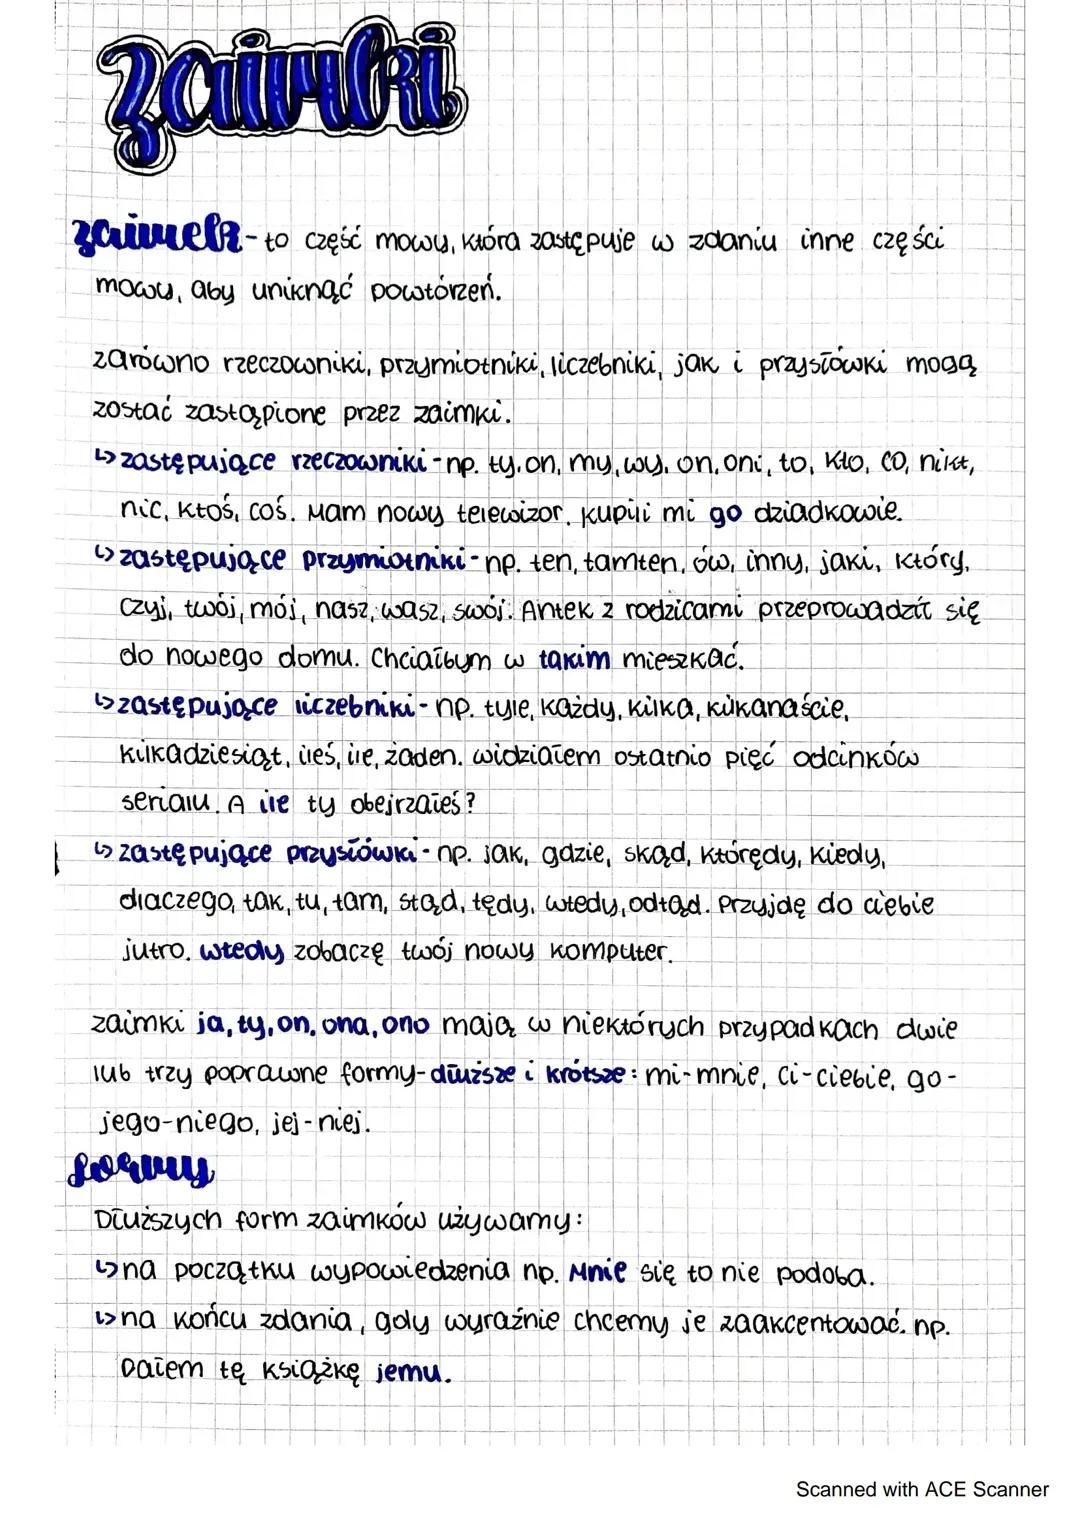 zaimki
zaimek - to część mowy, która zastępuje w zdaniu inne części
mowy, aby uniknąć powtórzeń.
zarówno rzeczowniki, przymiotniki, liczebniki, jak i przysłówki mogą
zostać zastąpione przez zaimki.
↳ zastępujące rzeczowniki - np. ty, on, my, wy, on, oni, to, kto, co, nikt,
nic, ktoś, coś. Mam nowy telewizor. Kupili mi go dziadkowie.
↳ zastępujące przymiotniki - np. ten, tamten, ów, inny, jaki, który,
czyj, twój, mój, nasz, wasz, swój. Antek z rodzicami przeprowadził się
do nowego domu. Chciałbym w takim mieszkać.
↳ zastępujące liczebniki - np. tyle, każdy, kilka, kilkanaście,
kilkadziesiąt, ileś, ile, żaden. widziałem ostatnio pięć odcinków
serialu. A ile ty obejrzałeś?
↳ zastępujące przysłówki - np. jak, gdzie, skąd, którędy, kiedy,
dlaczego, tak, tu, tam, stąd, tędy, wtedy, odtąd. Przyjdę do ciebie
jutro. wtedy zobaczę twój nowy komputer.
zaimki ja, ty, on, ona, ono mają w niektórych przypadkach dwie
lub trzy poprawne formy - dłuższe i krótsze: mi - mnie, ci - ciebie, go -
jego - niego, jej - niej.
formy
Dłuższych form zaimków używamy:
↳ na początku wypowiedzenia np. Mnie się to nie podoba.
↳ na końcu zdania, gdy wyraźnie chcemy je zaakcentować. np.
Dałem tę książkę jemu.
Scanned with ACE Scanner